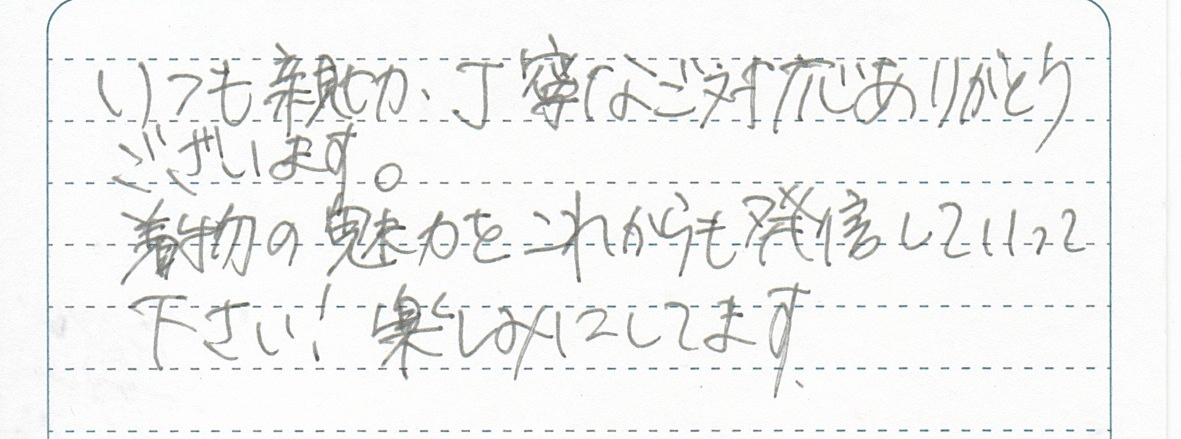 いつも親切、丁寧なご対応ありがとう
ございます。
着物の魅力をこれからも発信していって
下さい！楽しみにしてます。